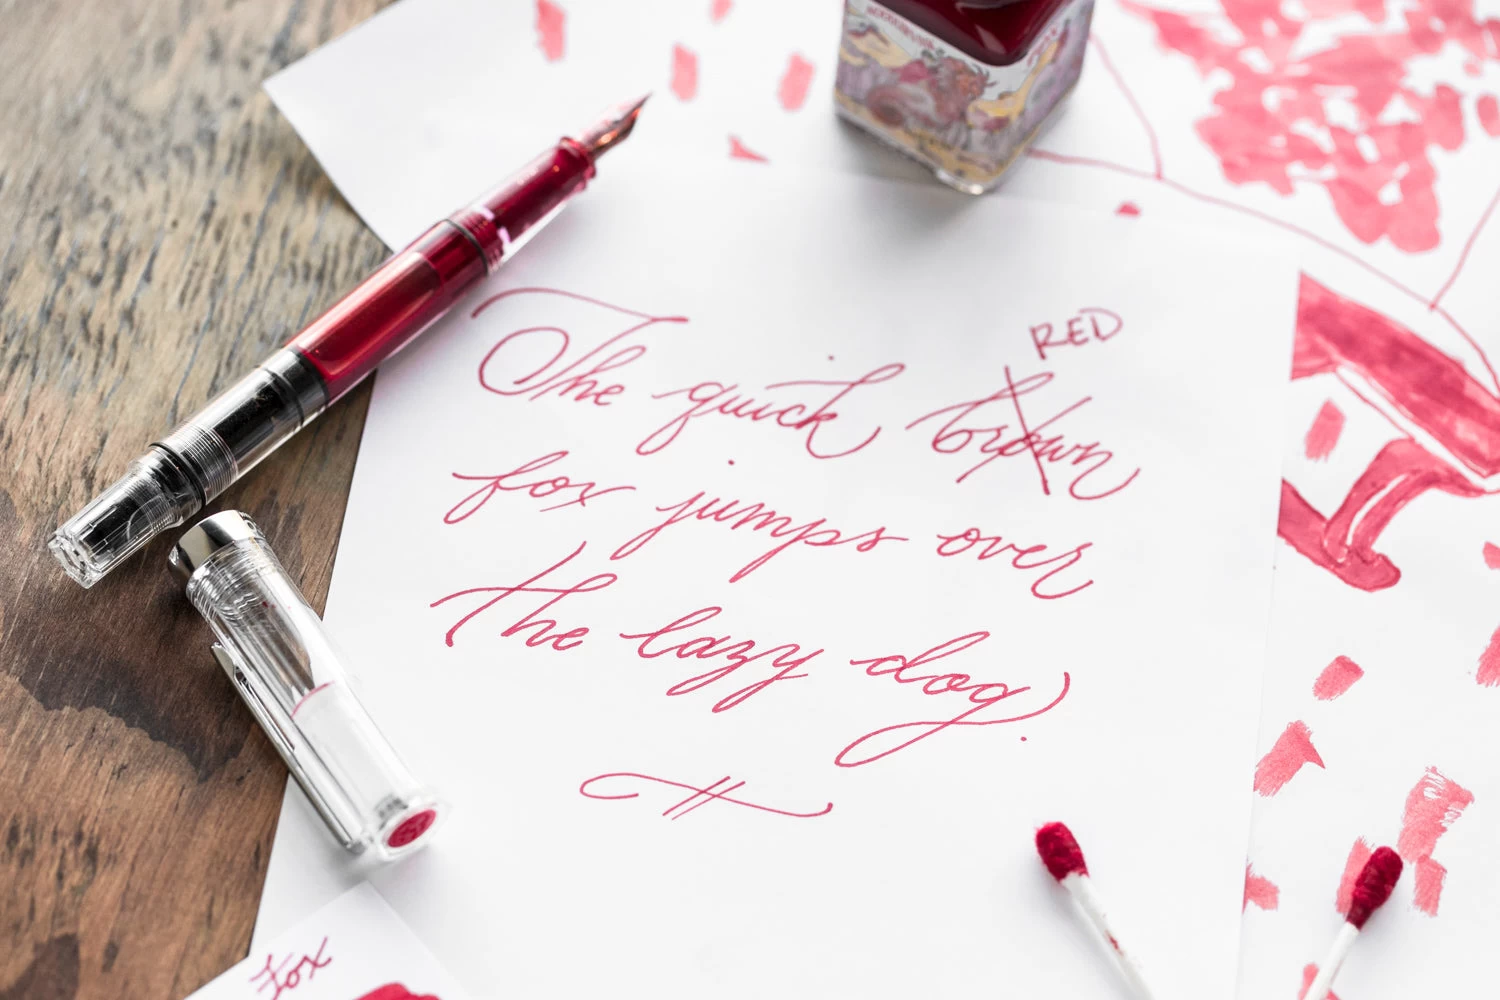 RED
The quick brown
fox jumps over
the lazy dog.
Fox